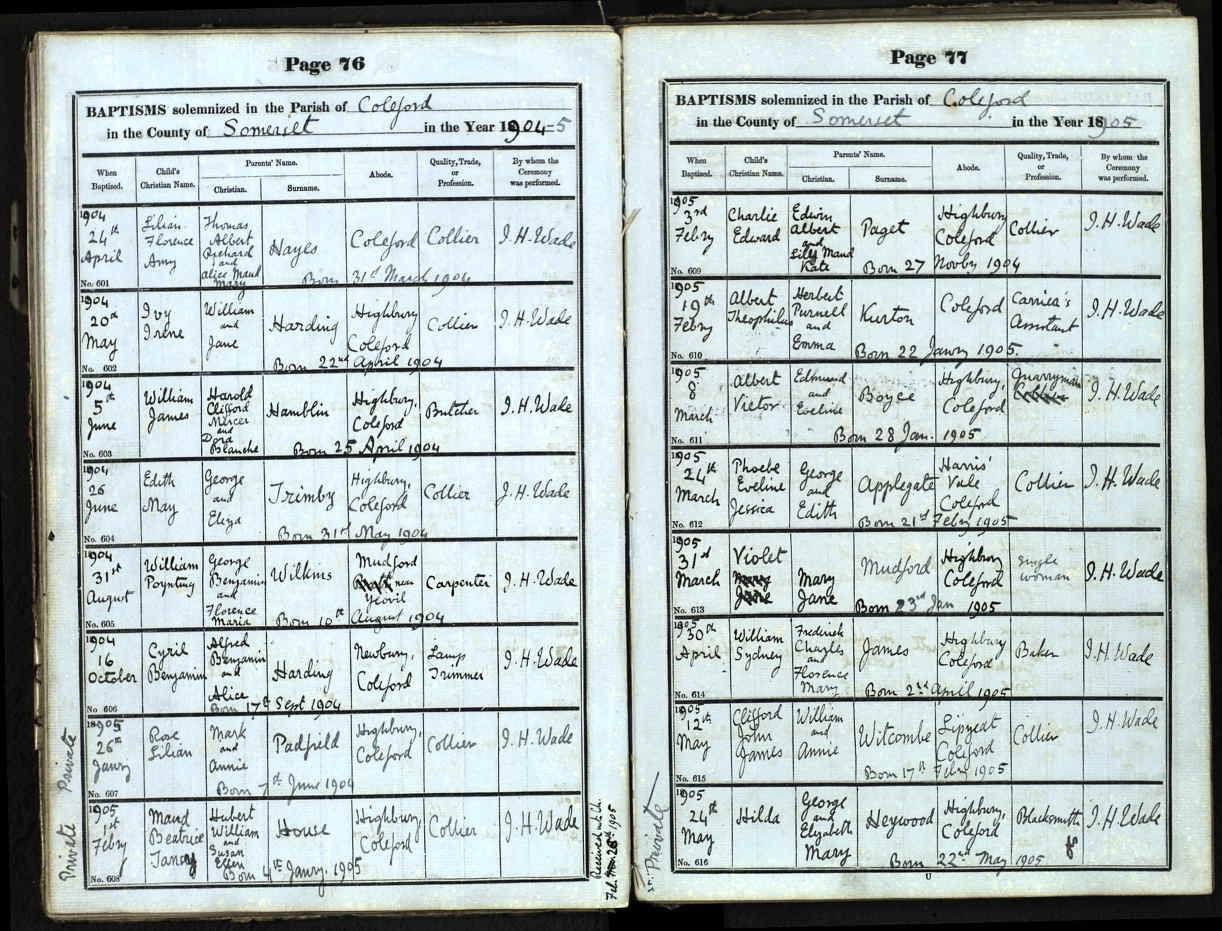 Page 76
BAPTISMS solemnized in the Parish of Coleford
in the County of Somerset in the Year 1904-5
When Baptized. Child's Christian Name. Parents' Name. Christian. Surname. Abode. Quality, Trade, or Profession. By whom the Ceremony was performed.
1904 24th April No. 601 Lilian Florence Amy Thomas Albert Prichard and Alice Maud Mary Hayes Coleford Collier I. H. Wade
Born 31st March 1904
1904 20th May No. 602 Ivy Irene William and Jane Harding Highbury Coleford Collier I. H. Wade
Born 22nd April 1904
1904 5th June No. 603 William James Harold Clifford Mercer and Dora Blanche Hamblin Highbury, Coleford Butcher I. H. Wade
Born 25 April 1904
1904 26 June No. 604 Edith May George and Eliza Trimby Highbury, Coleford Collier I. H. Wade
Born 31st May 1904
1904 31st August No. 605 William Poynting George Benjamin and Florence Maria Wilkins Mudford near Yeovil Carpenter I. H. Wade
Born 10th August 1904
1904 16 October No. 606 Cyril Benjamin Alfred Benjamin and Alice Harding Newbury, Coleford Lamp Trimmer I. H. Wade
Born 17th Sept 1904
Private
1905 26th Janry No. 607 Rose Lilian Mark and Annie Padfield Highbury, Coleford Collier I. H. Wade
Born 7th June 1904
Private
1905 1st Febry No. 608 Maud Beatrice Tansy Hubert William and Susan Ellen House Highbury, Coleford Collier I. H. Wade
Born 4th Janry. 1905
Received into Ch.
Feb. 26th 1905
Page 77
BAPTISMS solemnized in the Parish of Coleford
in the County of Somerset in the Year 1905
When Baptized. Child's Christian Name. Parents' Name. Christian. Surname. Abode. Quality, Trade, or Profession. By whom the Ceremony was performed.
1905 3rd Febry No. 609 Charlie Edward Edwin Albert and Lily Maud Kate Paget Highbury Coleford Collier I. H. Wade
Born 27 Novbr 1904
1905 19th Febry No. 610 Albert Theophilus Herbert Purnell and Emma Kurton Coleford Carrier's Assistant I. H. Wade
Born 22 Janry 1905.
1905 8 March No. 611 Albert Victor Edmund and Eveline Boyce Highbury, Coleford Quarryman Collier I. H. Wade
Born 28 Jan. 1905
1905 24th March No. 612 Phoebe Eveline Jessica George and Edith Applegate Harris' Vale Coleford Collier I. H. Wade
Born 21st Febry 1905
1905 31st March No. 613 Violet Mary Jane Mary Jane Mudford Highbury Coleford Single woman I. H. Wade
Born 23rd Jan 1905
1905 30th April No. 614 William Sydney Frederick Charles and Florence Mary James Highbury Coleford Baker I. H. Wade
Born 2nd April 1905
1905 12th May No. 615 Clifford John James William and Annie Witcombe Lipyeat Coleford Collier I. H. Wade
Born 17th Febry 1905
Private
1905 24th May No. 616 Hilda George and Elizabeth Mary Heywood Highbury, Coleford Blacksmith I. H. Wade
Born 22nd May 1905